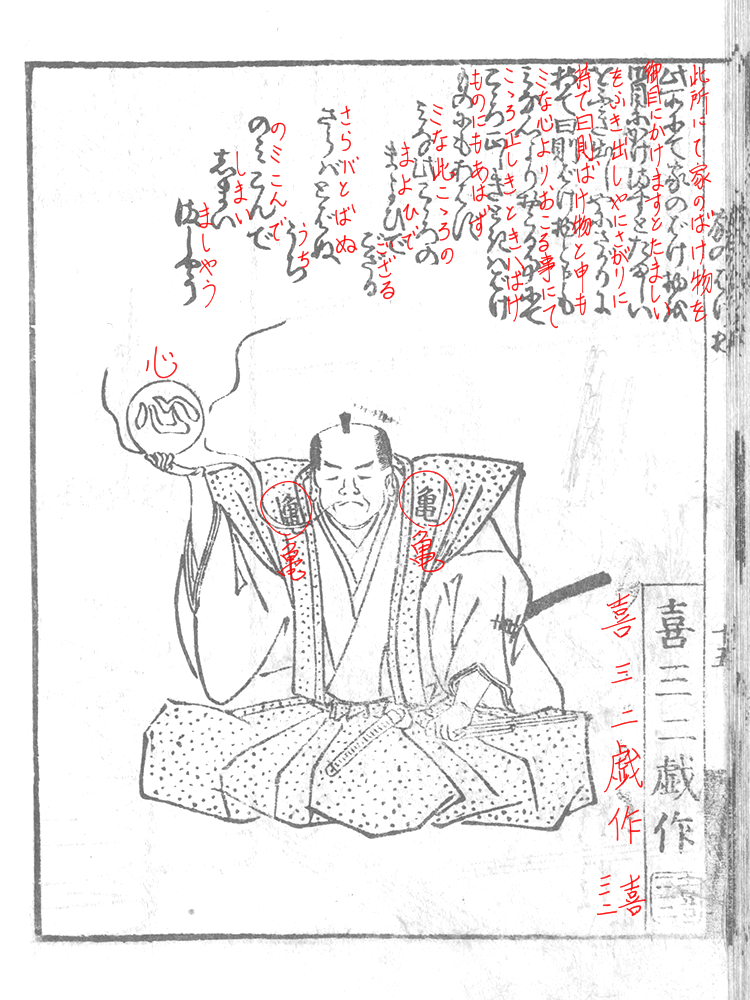 此所にて家のばけ物を
御目にかけますとたましい
をふき出しやにさがりに
持て曰則ばけ物と申も
ミな心よりおこる事にて
こゝろ正しきときハばけ
ものにもあはず
ミな此こゝろの
まよひで
ござる
さらバとばぬ
うち
のミこんで
しまい
ましやう
心
心
亀
亀
亀
亀
喜三二戯作
喜三二戯作
喜三二